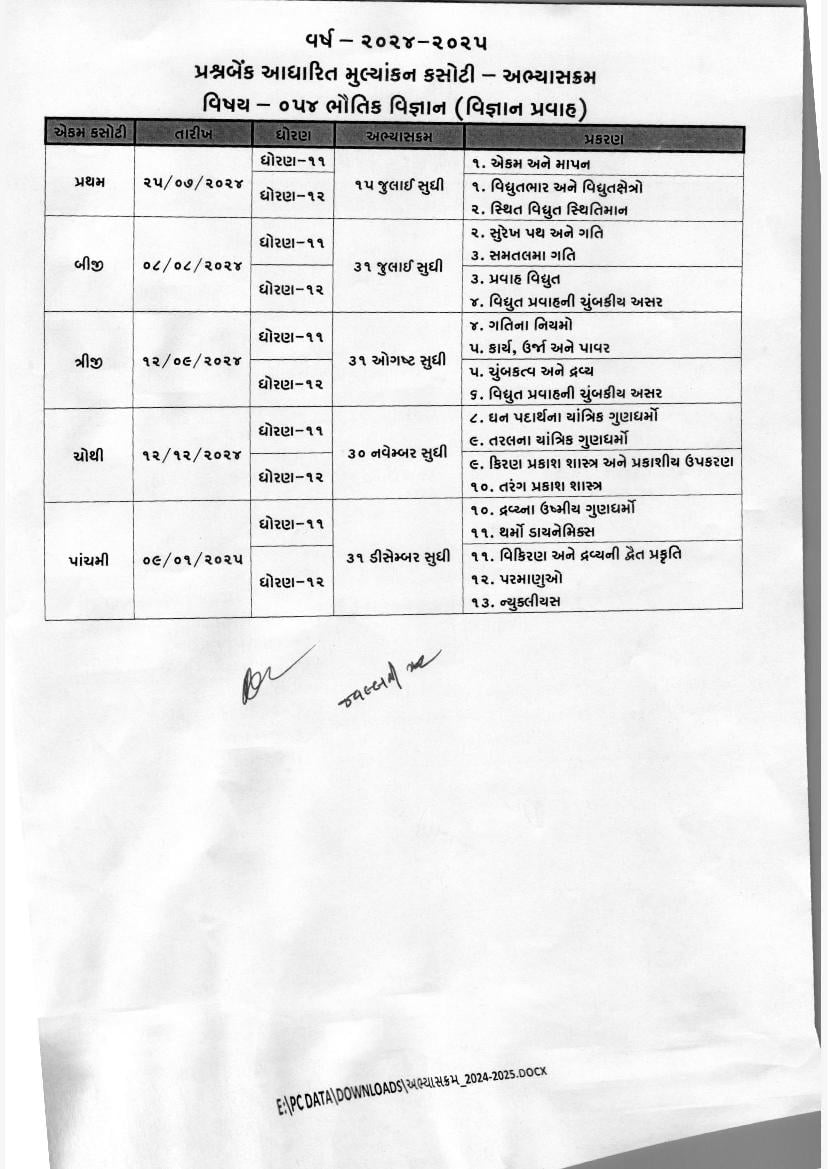 વર્ષ – ૨૦૨૪-૨૦૨૫
પ્રશ્નબેંક આધારિત મુલ્યાંકન કસોટી – અભ્યાસક્રમ
વિષય – ૦૫૪ ભૌતિક વિજ્ઞાન (વિજ્ઞાન પ્રવાહ)
એકમ કસોટી તારીખ ધોરણ અભ્યાસક્રમ પ્રકરણ
પ્રથમ ૨૫/૦૭/૨૦૨૪ ધોરણ-૧૧ ૧૫ જુલાઈ સુધી ૧. એકમ અને માપન
ધોરણ-૧૨ ૧. વિદ્યુતભાર અને વિદ્યુતક્ષેત્રો
૨. સ્થિત વિદ્યુત સ્થિતિમાન
બીજી ૦૮/૦૮/૨૦૨૪ ધોરણ-૧૧ ૩૧ જુલાઈ સુધી ૨. સુરેખ પથ અને ગતિ
૩. સમતલમા ગતિ
ધોરણ-૧૨ ૩. પ્રવાહ વિદ્યુત
૪. વિદ્યુત પ્રવાહની ચુંબકીય અસર
ત્રીજી ૧૨/૦૯/૨૦૨૪ ધોરણ-૧૧ ૩૧ ઓગષ્ટ સુધી ૪. ગતિના નિયમો
૫. કાર્ય, ઉર્જા અને પાવર
ધોરણ-૧૨ ૫. ચુંબકત્વ અને દ્રવ્ય
૬. વિદ્યુત પ્રવાહની ચુંબકીય અસર
ચોથી ૧૨/૧૨/૨૦૨૪ ધોરણ-૧૧ ૩૦ નવેમ્બર સુધી ૮. ઘન પદાર્થના યાંત્રિક ગુણધર્મો
૯. તરલના યાંત્રિક ગુણધર્મો
ધોરણ-૧૨ ૯. કિરણ પ્રકાશ શાસ્ત્ર અને પ્રકાશીય ઉપકરણ
૧૦. તરંગ પ્રકાશ શાસ્ત્ર
પાંચમી ૦૯/૦૧/૨૦૨૫ ધોરણ-૧૧ ૩૧ ડીસેમ્બર સુધી ૧૦. દ્રવ્યના ઉષ્મીય ગુણધર્મો
૧૧. થર્મો ડાયનેમિક્સ
ધોરણ-૧૨ ૧૧. વિકિરણ અને દ્રવ્યની દ્વૈત પ્રકૃતિ
૧૨. પરમાણુઓ
૧૩. ન્યુક્લીયસ
E:\PC DATA\DOWNLOADS\અભ્યાસક્રમ_2024-2025.DOCX